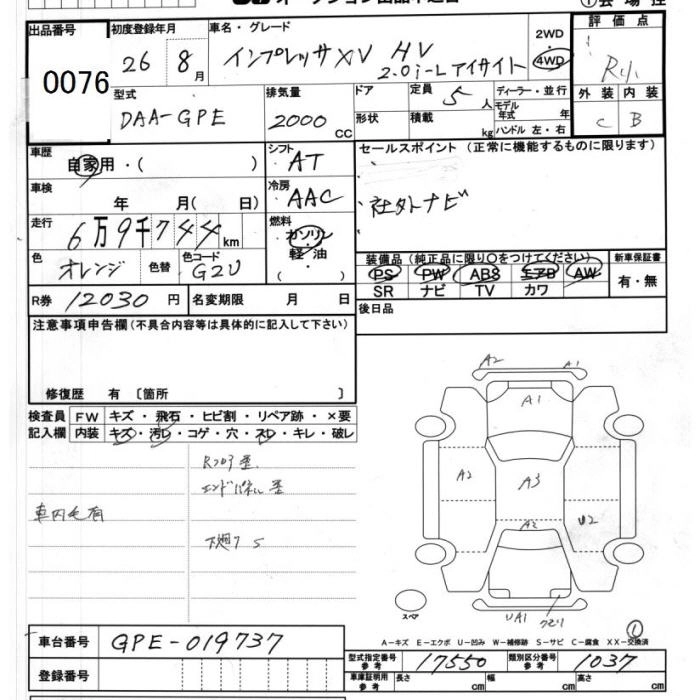 オークション出品申込書
①会場控
出品番号 0076
初度登録年月 26 8月
車名・グレード インプレッサXV HV 2.0i-Lアイサイト
2WD 4WD
評価点
外装 内装
C B
型式 DAA-GPE
排気量 2000 CC
ドア 形状
定員 5人
積載 kg
ディーラー・並行
モデル年式 年
ハンドル 左・右
車歴 自家用・( )
シフト AT
車検 年 月( 日)
冷房 AAC
走行 6万9千744km
燃料 ガソリン 軽油 ( )
色 オレンジ 色替 色コード G2U
R券 12030円 名変期限 月 日
セールスポイント (正常に機能するものに限ります)
社外ナビ
装備品 (純正品に限り○をつけてください) 新車保証書
PS PW ABS エアB AW 有・無
SR ナビ TV カワ
後日品
注意事項申告欄(不具合内容等は具体的に記入して下さい)
修復歴 有 〔箇所 〕
検査員記入欄
FW キズ・飛石・ヒビ割・リペア跡・×要
内装 キズ・汚レ・コゲ・穴・スレ・キレ・破レ
エンドパネル歪
車内毛有
下廻り S
A2 A1
A1
A2 A3
A2 U2
UA1 クモリ
スペア
①
A-キズ E-エクボ U-凹み W-補修跡 S-サビ C-腐食 XX-交換済
車台番号 GPE-019737
登録番号
型式指定番号 参考 17550 類別区分番号 参考 1037
車庫証明用 参考 長さ cm 幅 cm 高さ cm